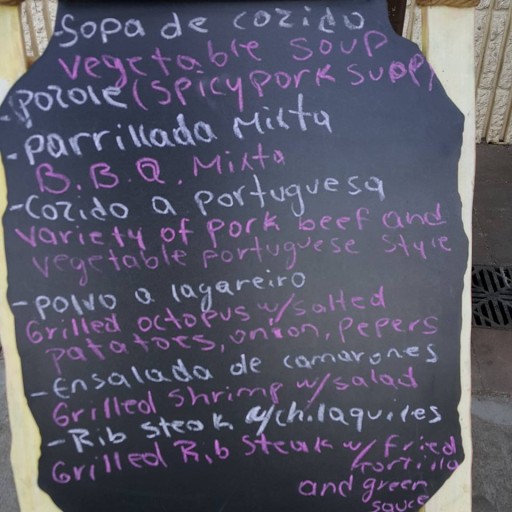 -Sopa de cozido
vegetable soup
-pozole (spicy pork supp)
-parrillada Mixta
B.B.Q. Mixta
-Cozido a portuguesa
variety of pork beef and
vegetable portuguese style
-polvo a lagareiro
Grilled octopus w/salted
patatoes, onion, pepers
-Ensalada de camarones
Grilled shrimp w/salad
-Rib steak w/chilaquiles
Grilled Rib steak w/ fried
tortilla
and green
sauce